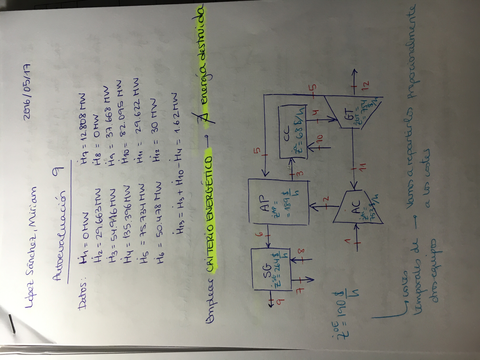 López Sánchez, Miriam
2016/05/17
Autoevaluación 9
Datos:
Ḣ1 = 0 MW
Ḣ2 = 29.663 MW
Ḣ3 = 54.946 MW
Ḣ4 = 135.396 MW
Ḣ5 = 75.734 MW
Ḣ6 = 50.478 MW
Ḣ7 = 12.808 MW
Ḣ8 = 0 MW
Ḣ9 = 37.668 MW
Ḣ10 = 82.095 MW
Ḣ11 = 29.622 MW
Ḣ12 = 30 MW
= Ḣ3 + Ḣ10 - Ḣ4 = 1.62 MW
Emplear CRITERIO ENERGÉTICO → energía destruida
SG
AP
CC
AC
GT
1
2
3
4
5
5
6
7
8
9
10
11
12
= 190 $/h
costes temporales de otros equipos → Vamos a repartirlos proporcionalmente a los costes